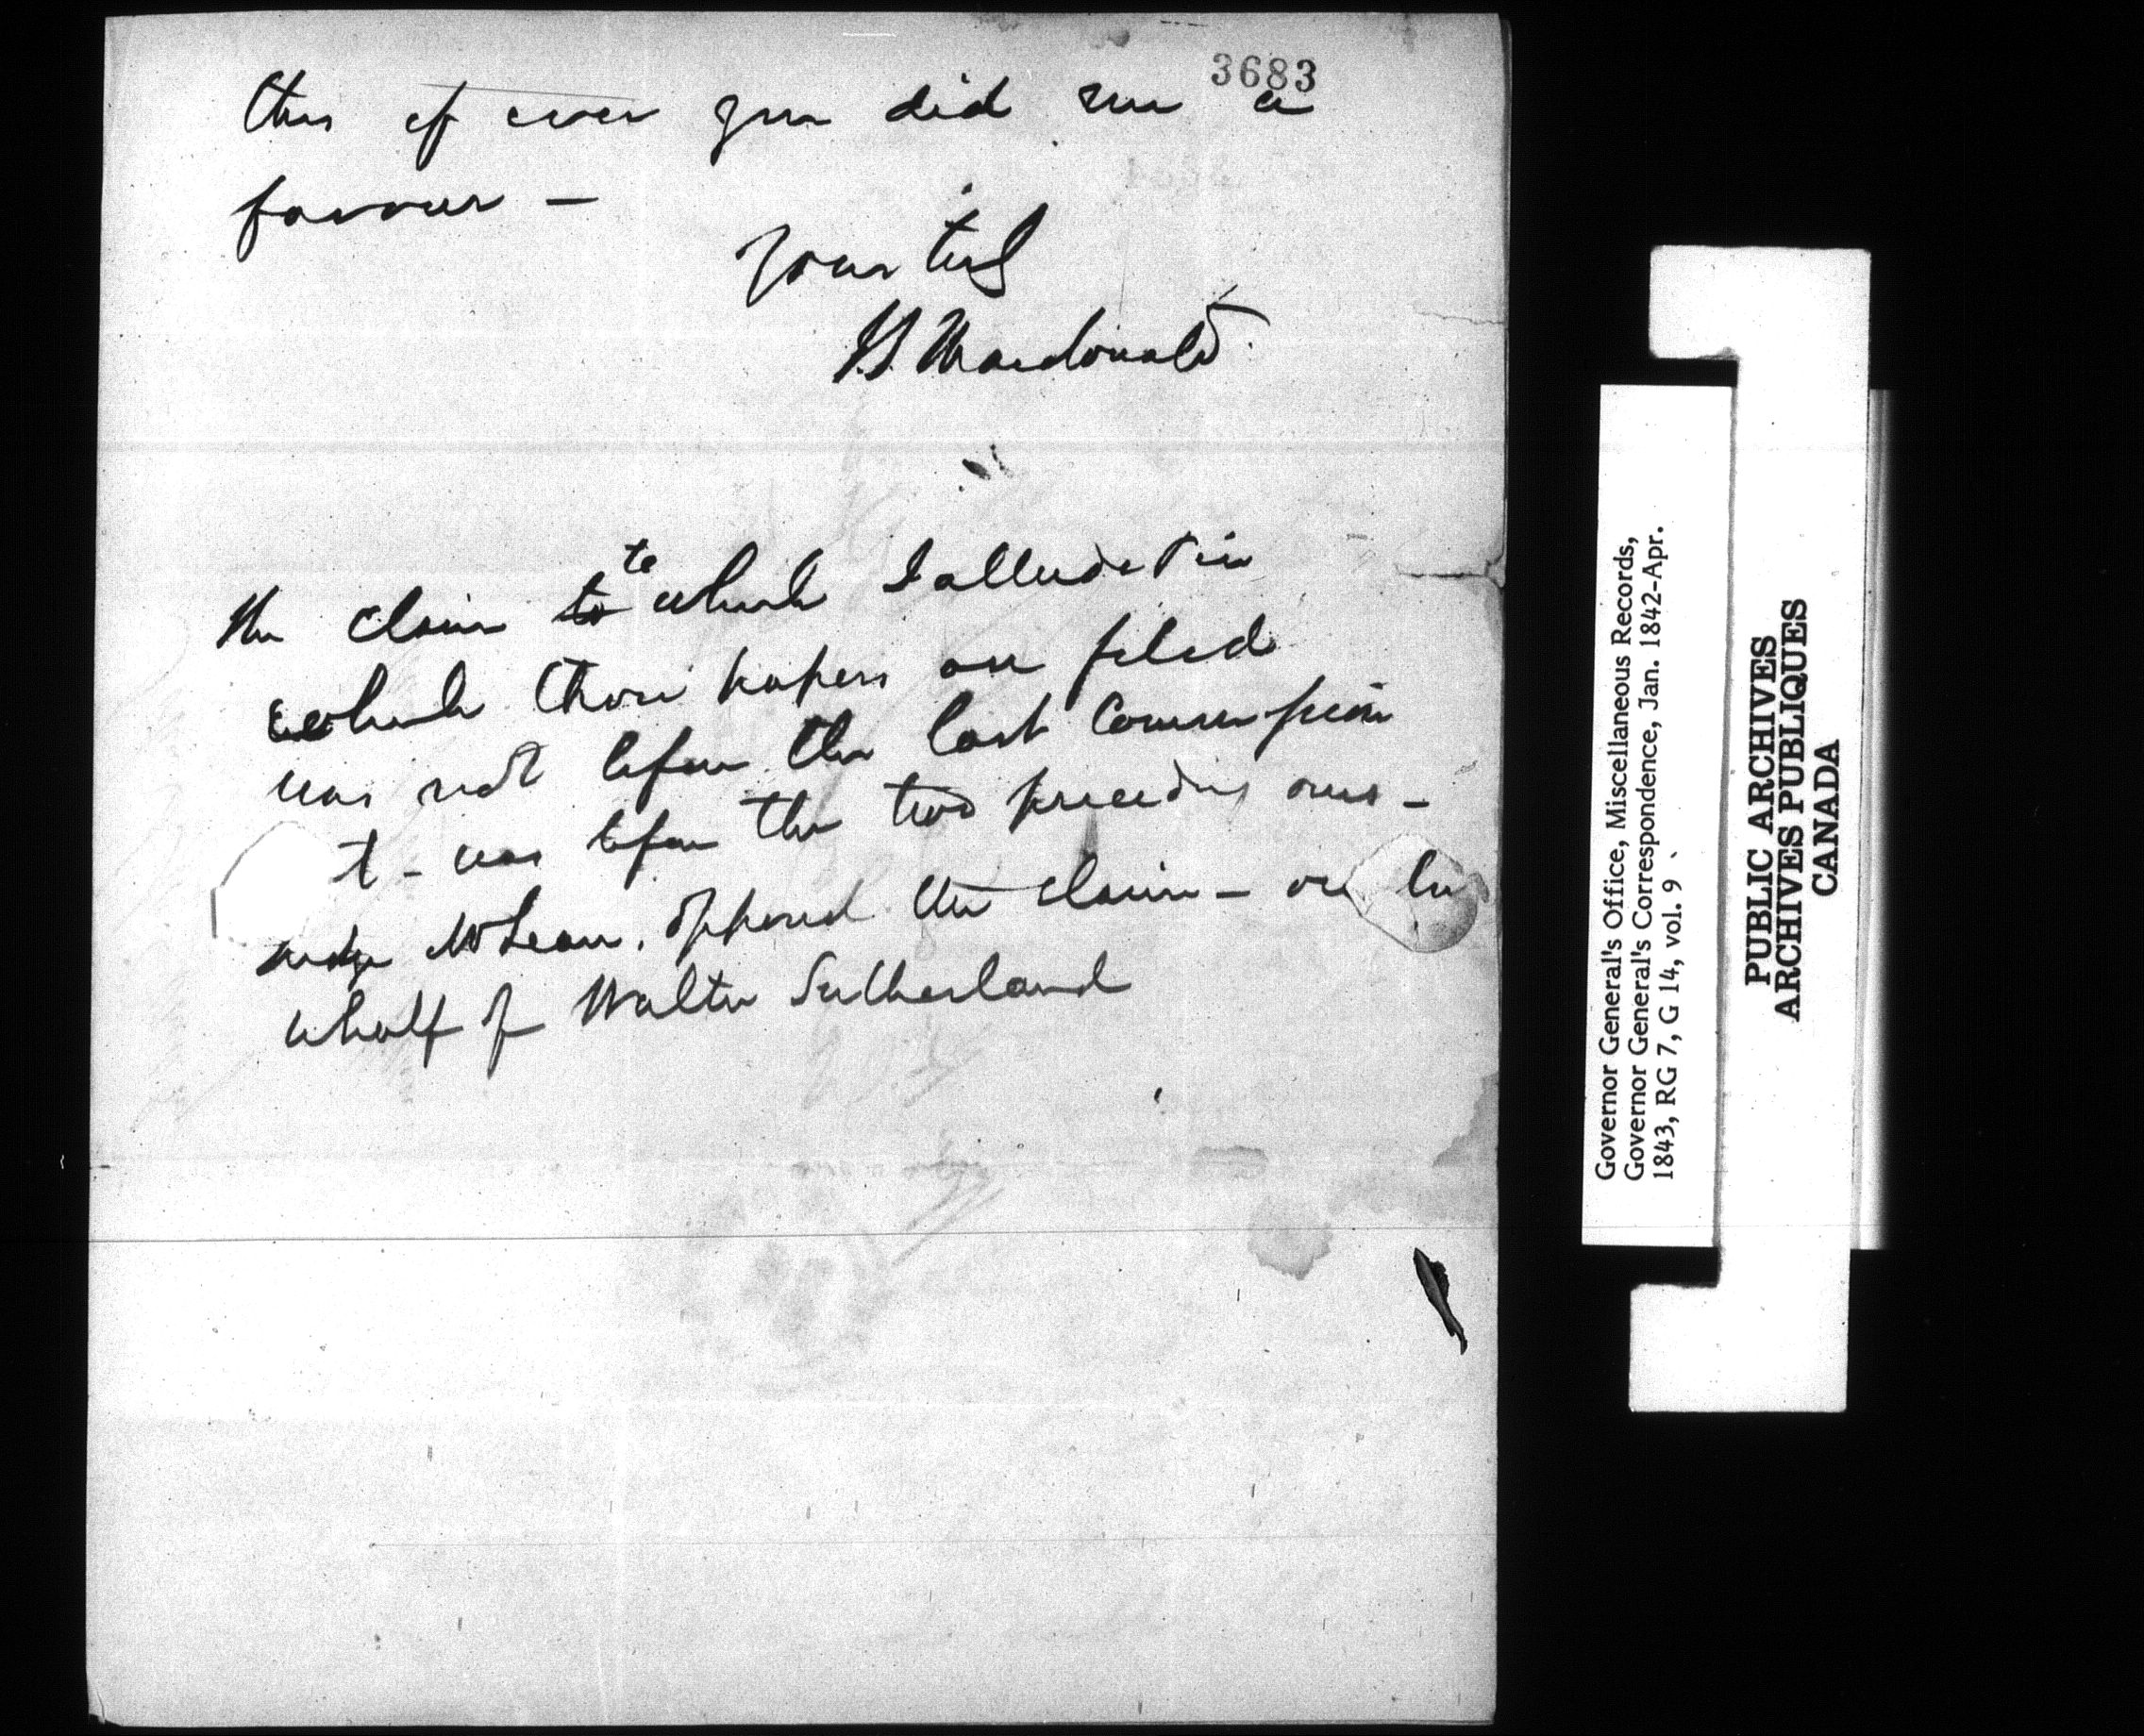 3683
this if ever you did me a
favour –
Yours truly
J.S. Macdonald
The claim to to which I allude & in
which those papers are filed
was not before the last Commission
t – was before the two preceding ones –
Judge McLean. opposed the claim – on be
behalf of Walter Sutherland
Governor General's Office, Miscellaneous Records,
Governor General's Correspondence, Jan. 1842-Apr.
1843, RG 7, G 14, vol. 9
PUBLIC ARCHIVES
ARCHIVES PUBLIQUES
CANADA